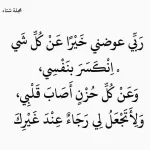 مجلة شتاء
رَبِّي عوضني خَيْرًا عَنْ كُلِّ شَي
ءٍ اِنْكَسَرَ بِنَفْسِي،
وَعَنْ كُلِّ حُزْنٍ أَصَابَ قَلْبِي،
وَلَاتَجْعَلْ لِي رَجَاءً عِنْدَ غَيْرِكَ